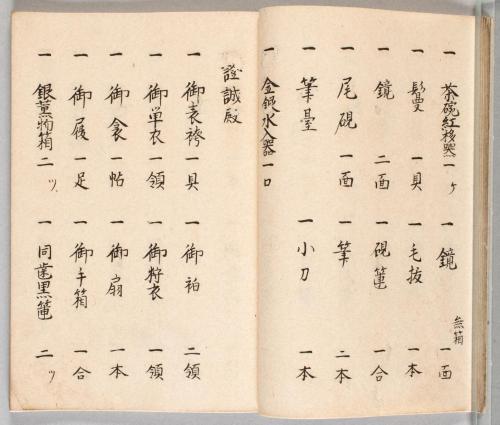 一 茶碗紅移器 一ヶ 一 鏡 無箱 一面
一 鬘 一具 一 毛抜 一本
一 鏡 二面 一 硯筥 一合
一 尾硯 一面 一 筆 二本
一 筆臺 一 小刀 一本
一 金銀水入器 一口
證誠殿
一 御表袴 一具 一 御袙 二領
一 御単衣 一領 一 御狩衣 一領
一 御衾 一帖 一 御扇 一本
一 御履 一足 一 御手箱 一合
一 銀薫物箱 二ツ 一 同歯黒筥 二ツ